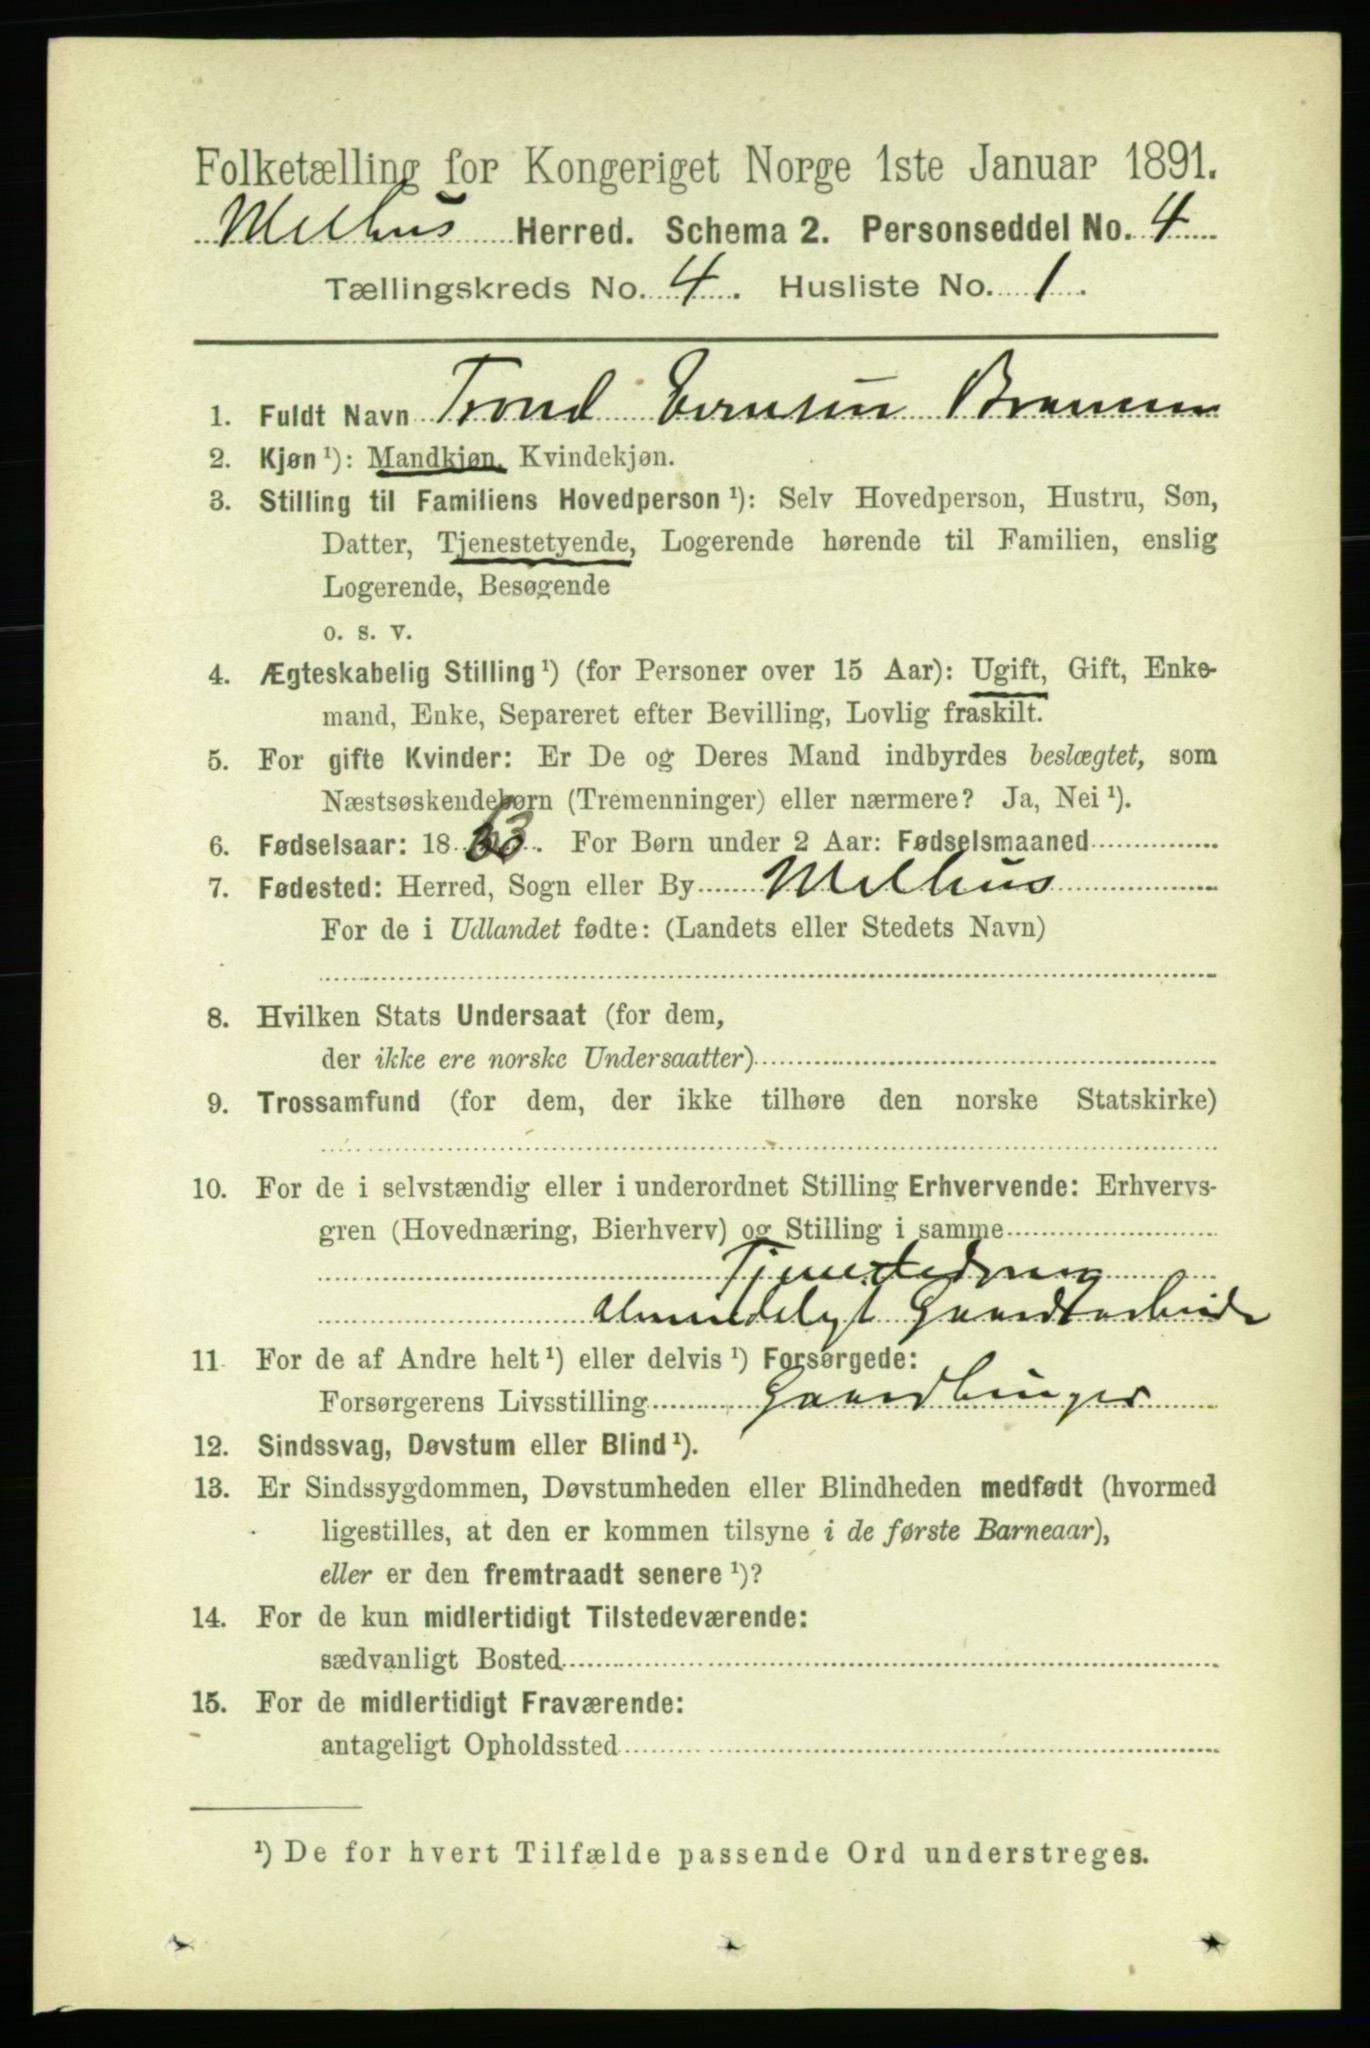 Folketælling for Kongeriget Norge 1ste Januar 1891.
Melhus Herred. Schema 2. Personseddel No. 4
Tællingskreds No. 4. Husliste No. 1.
1. Fuldt Navn Trond
2. Kjøn ¹): Mandkjøn, Kvindekjøn.
3. Stilling til Familiens Hovedperson ¹): Selv Hovedperson, Hustru, Søn,
Datter, Tjenestetyende, Logerende hørende til Familien, enslig
Logerende, Besøgende
o. s. v.
4. Ægteskabelig Stilling ¹) (for Personer over 15 Aar): Ugift, Gift, Enke-
mand, Enke, Separeret efter Bevilling, Lovlig fraskilt.
5. For gifte Kvinder: Er De og Deres Mand indbyrdes beslægtet, som
Næstsøskendebørn (Tremenninger) eller nærmere? Ja, Nei ¹).
6. Fødselsaar: 1863. For Børn under 2 Aar: Fødselsmaaned
7. Fødested: Herred, Sogn eller By Melhus
For de i Udlandet fødte: (Landets eller Stedets Navn)
8. Hvilken Stats Undersaat (for dem,
der ikke ere norske Undersaatter)
9. Trossamfund (for dem, der ikke tilhøre den norske Statskirke)
10. For de i selvstændig eller i underordnet Stilling Erhvervende: Erhvervs-
gren (Hovednæring, Bierhverv) og Stilling i samme
Tjenestedreng
almindeligt Gaardsarbeide
11 For de af Andre helt ¹) eller delvis ¹) Forsørgede:
Forsørgerens Livsstilling Gaardbruger
12. Sindssvag, Døvstum eller Blind ¹).
13. Er Sindssygdommen, Døvstumheden eller Blindheden medfødt (hvormed
ligestilles, at den er kommen tilsyne i de første Barneaar),
eller er den fremtraadt senere ¹)?
14. For de kun midlertidigt Tilstedeværende:
sædvanligt Bosted
15. For de midlertidigt Fraværende:
antageligt Opholdssted
¹) De for hvert Tilfælde passende Ord understreges.